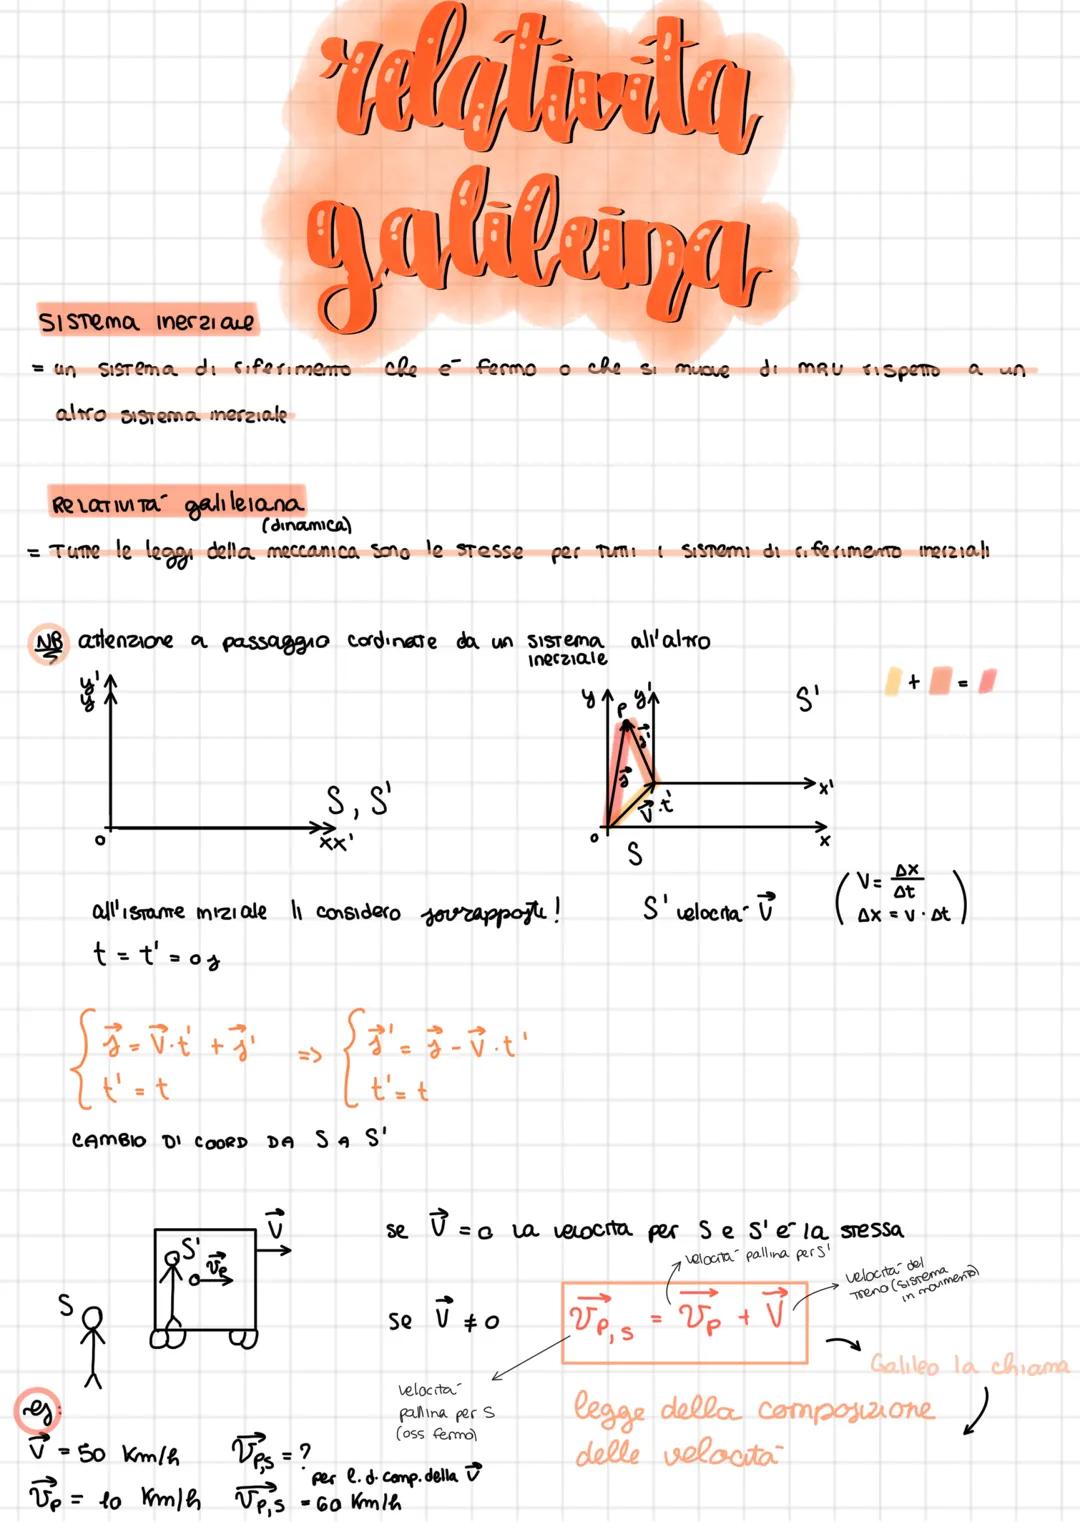 relatività
galileina
SISTEMA INERZIALE
= un SISTEMA di riferimento che è fermo o che si muove di MRU rispetto a un
altro sistema inerziale
RELATIVITÀ galileiana
(dinamica)
= Tutte le leggi della meccanica sono le stesse per tutti i sistemi di riferimento inerziali
NB attenzione a passaggio cordinate da un sistema inerziale all'altro
y'
y
S, S'
o
xx'
y y' S'
P
s'
s
x'
V·t'
o
x
S
+ =
all'istante iniziale li considero sovrapposti!
t = t' = 0s
S' velocità V
(V = Δx/Δt
Δx = v · Δt)
{ s = V·t' + s' => { s' = s - V·t'
t' = t t' = t
CAMBIO DI COORD DA S A S'
V
S'
vp
S
se V = 0 la velocità per S e S' è la stessa
velocità pallina per S'
velocità del
treno (sistema
in movimento)
se V ≠ 0
vp,s = vp + V
Galileo la chiama
velocità
pallina per S
(oss fermo)
legge della composizione
delle velocità
es:
V = 50 Km/h vp,s = ?
per l. d. comp. della v
vp = 10 Km/h vp,s = 60 Km/h